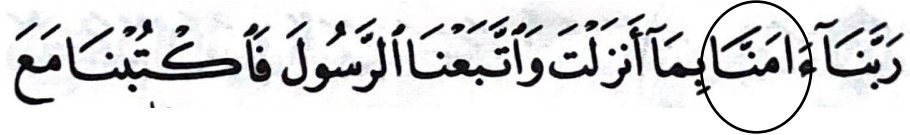 رَبَّنَآ ءَامَنَّا بِمَآ أَنزَلْتَ وَٱتَّبَعْنَا ٱلرَّسُولَ فَٱكْتُبْنَا مَعَ